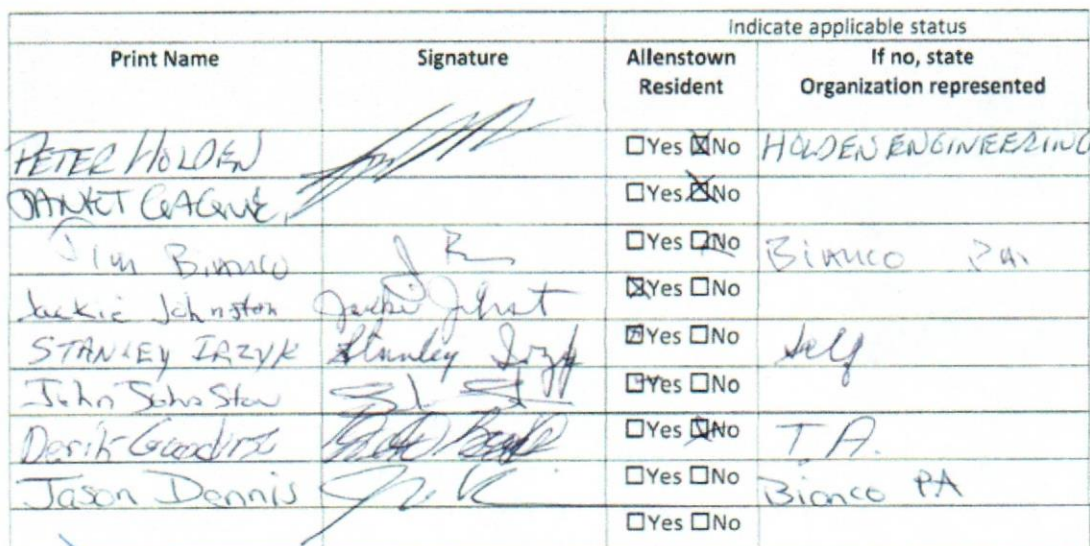 Indicate applicable status
Print Name Signature Allenstown Resident If no, state Organization represented
PETER HOLDEN ☐Yes ☒No HOLDEN ENGINEERING
☐Yes ☒No
Jim Bianco ☐Yes ☒No Bianco P.A.
Jackie Johnston Jackie Johnst ☒Yes ☐No
STANLEY IRZYK Stanley Irzyk ☒Yes ☐No Self
John Johnston ☒Yes ☐No
Derik Goodine ☐Yes ☒No T.A.
Jason Dennis ☐Yes ☐No Bianco PA
☐Yes ☐No